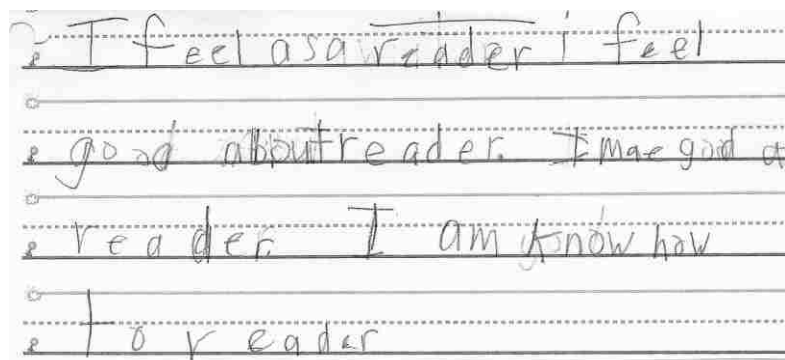 I feel as a reader i feel
good about reader. I mae good at
reader. I am know how
to reader